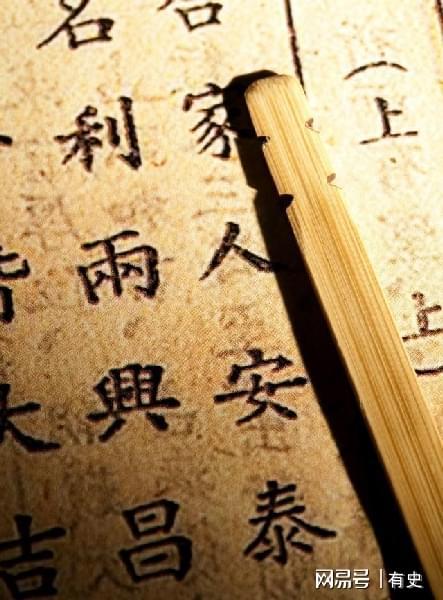 （上 上）
合家人安泰
名利兩興昌
皆大吉
网易号 | 有史